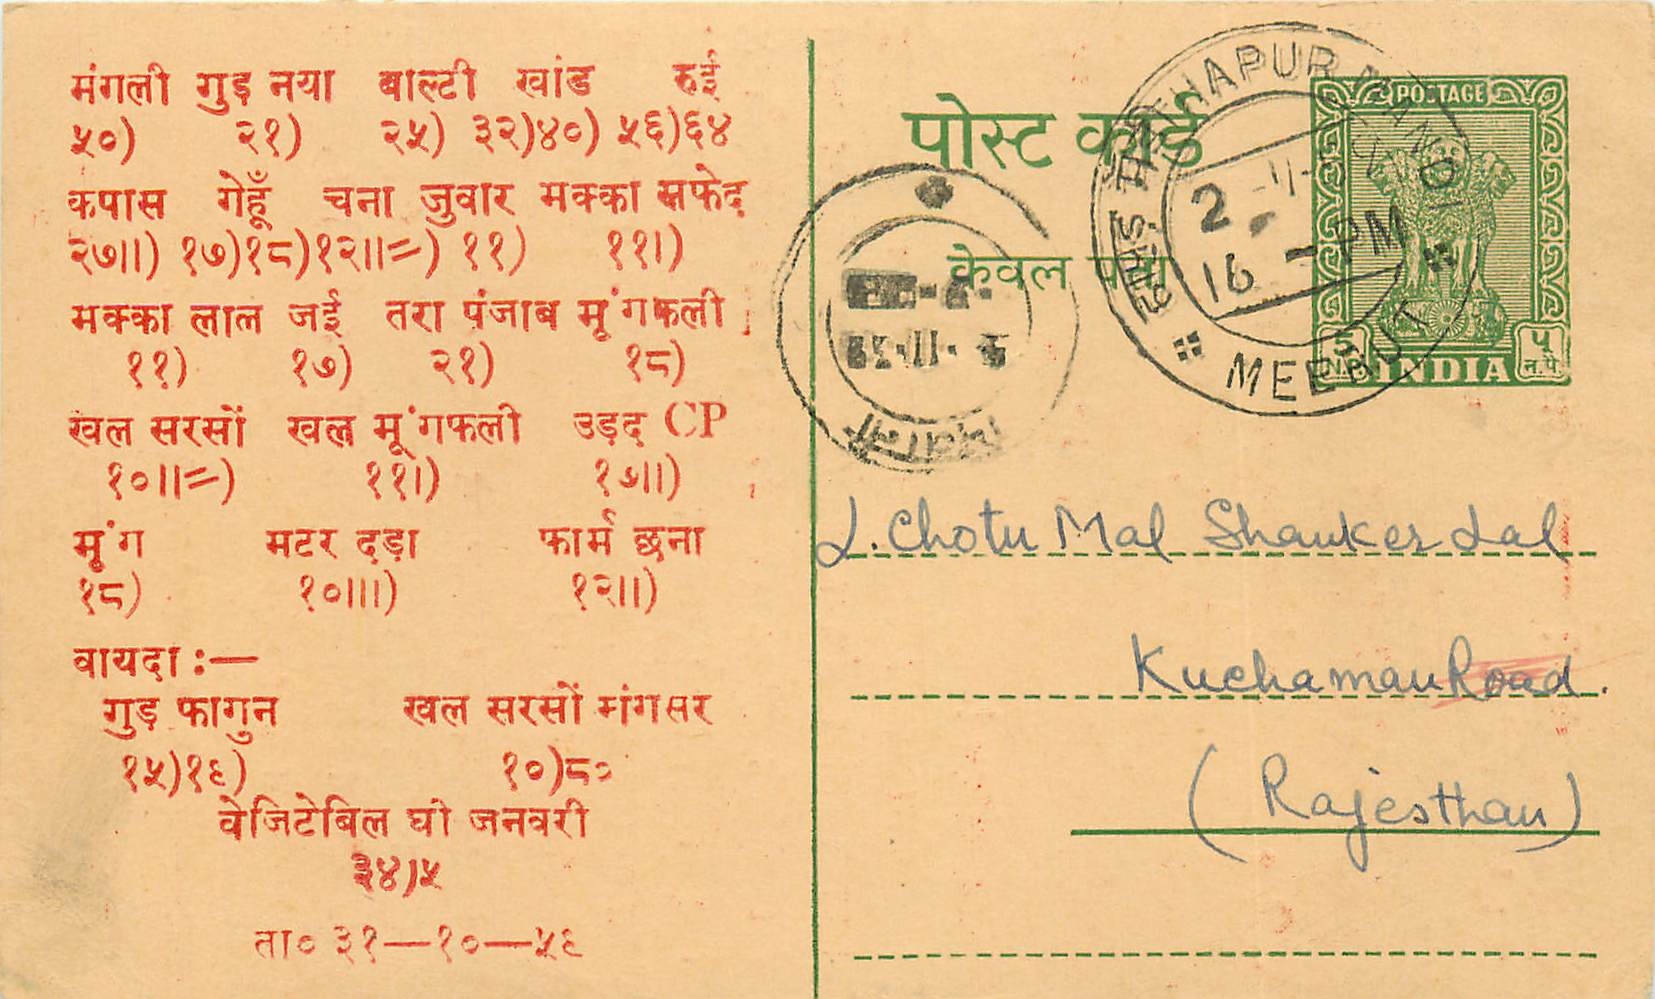 मंगली गुड़ नया बाल्टी खांड रुई
५०) २१) २५) ३२)४०) ५६)६४
कपास गेहूँ चना जुवार मक्का सफेद
२७॥) १७)१८)१२॥=) ११) ११।)
मक्का लाल जई तरा पंजाब मूंगफली
११) १७) २१) १८)
खल सरसों खल मूंगफली उड़द CP
१०॥=) ११।) १७॥)
मूंग मटर दड़ा फार्म छना
१८) १०॥।) १२॥)
वायदा :—
गुड़ फागुन खल सरसों मंगसर
१५)१६) १०)८०
वेजिटेबिल घी जनवरी
३४)५
ता० ३१—१०—५९
पोस्ट कार्ड
केवल पता
POSTAGE
INDIA
५
न.पै.
MANDI
MEERUT
16 - PM
L. Chotu Mal Shanker Lal
Kuchaman Road.
(Rajesthan)